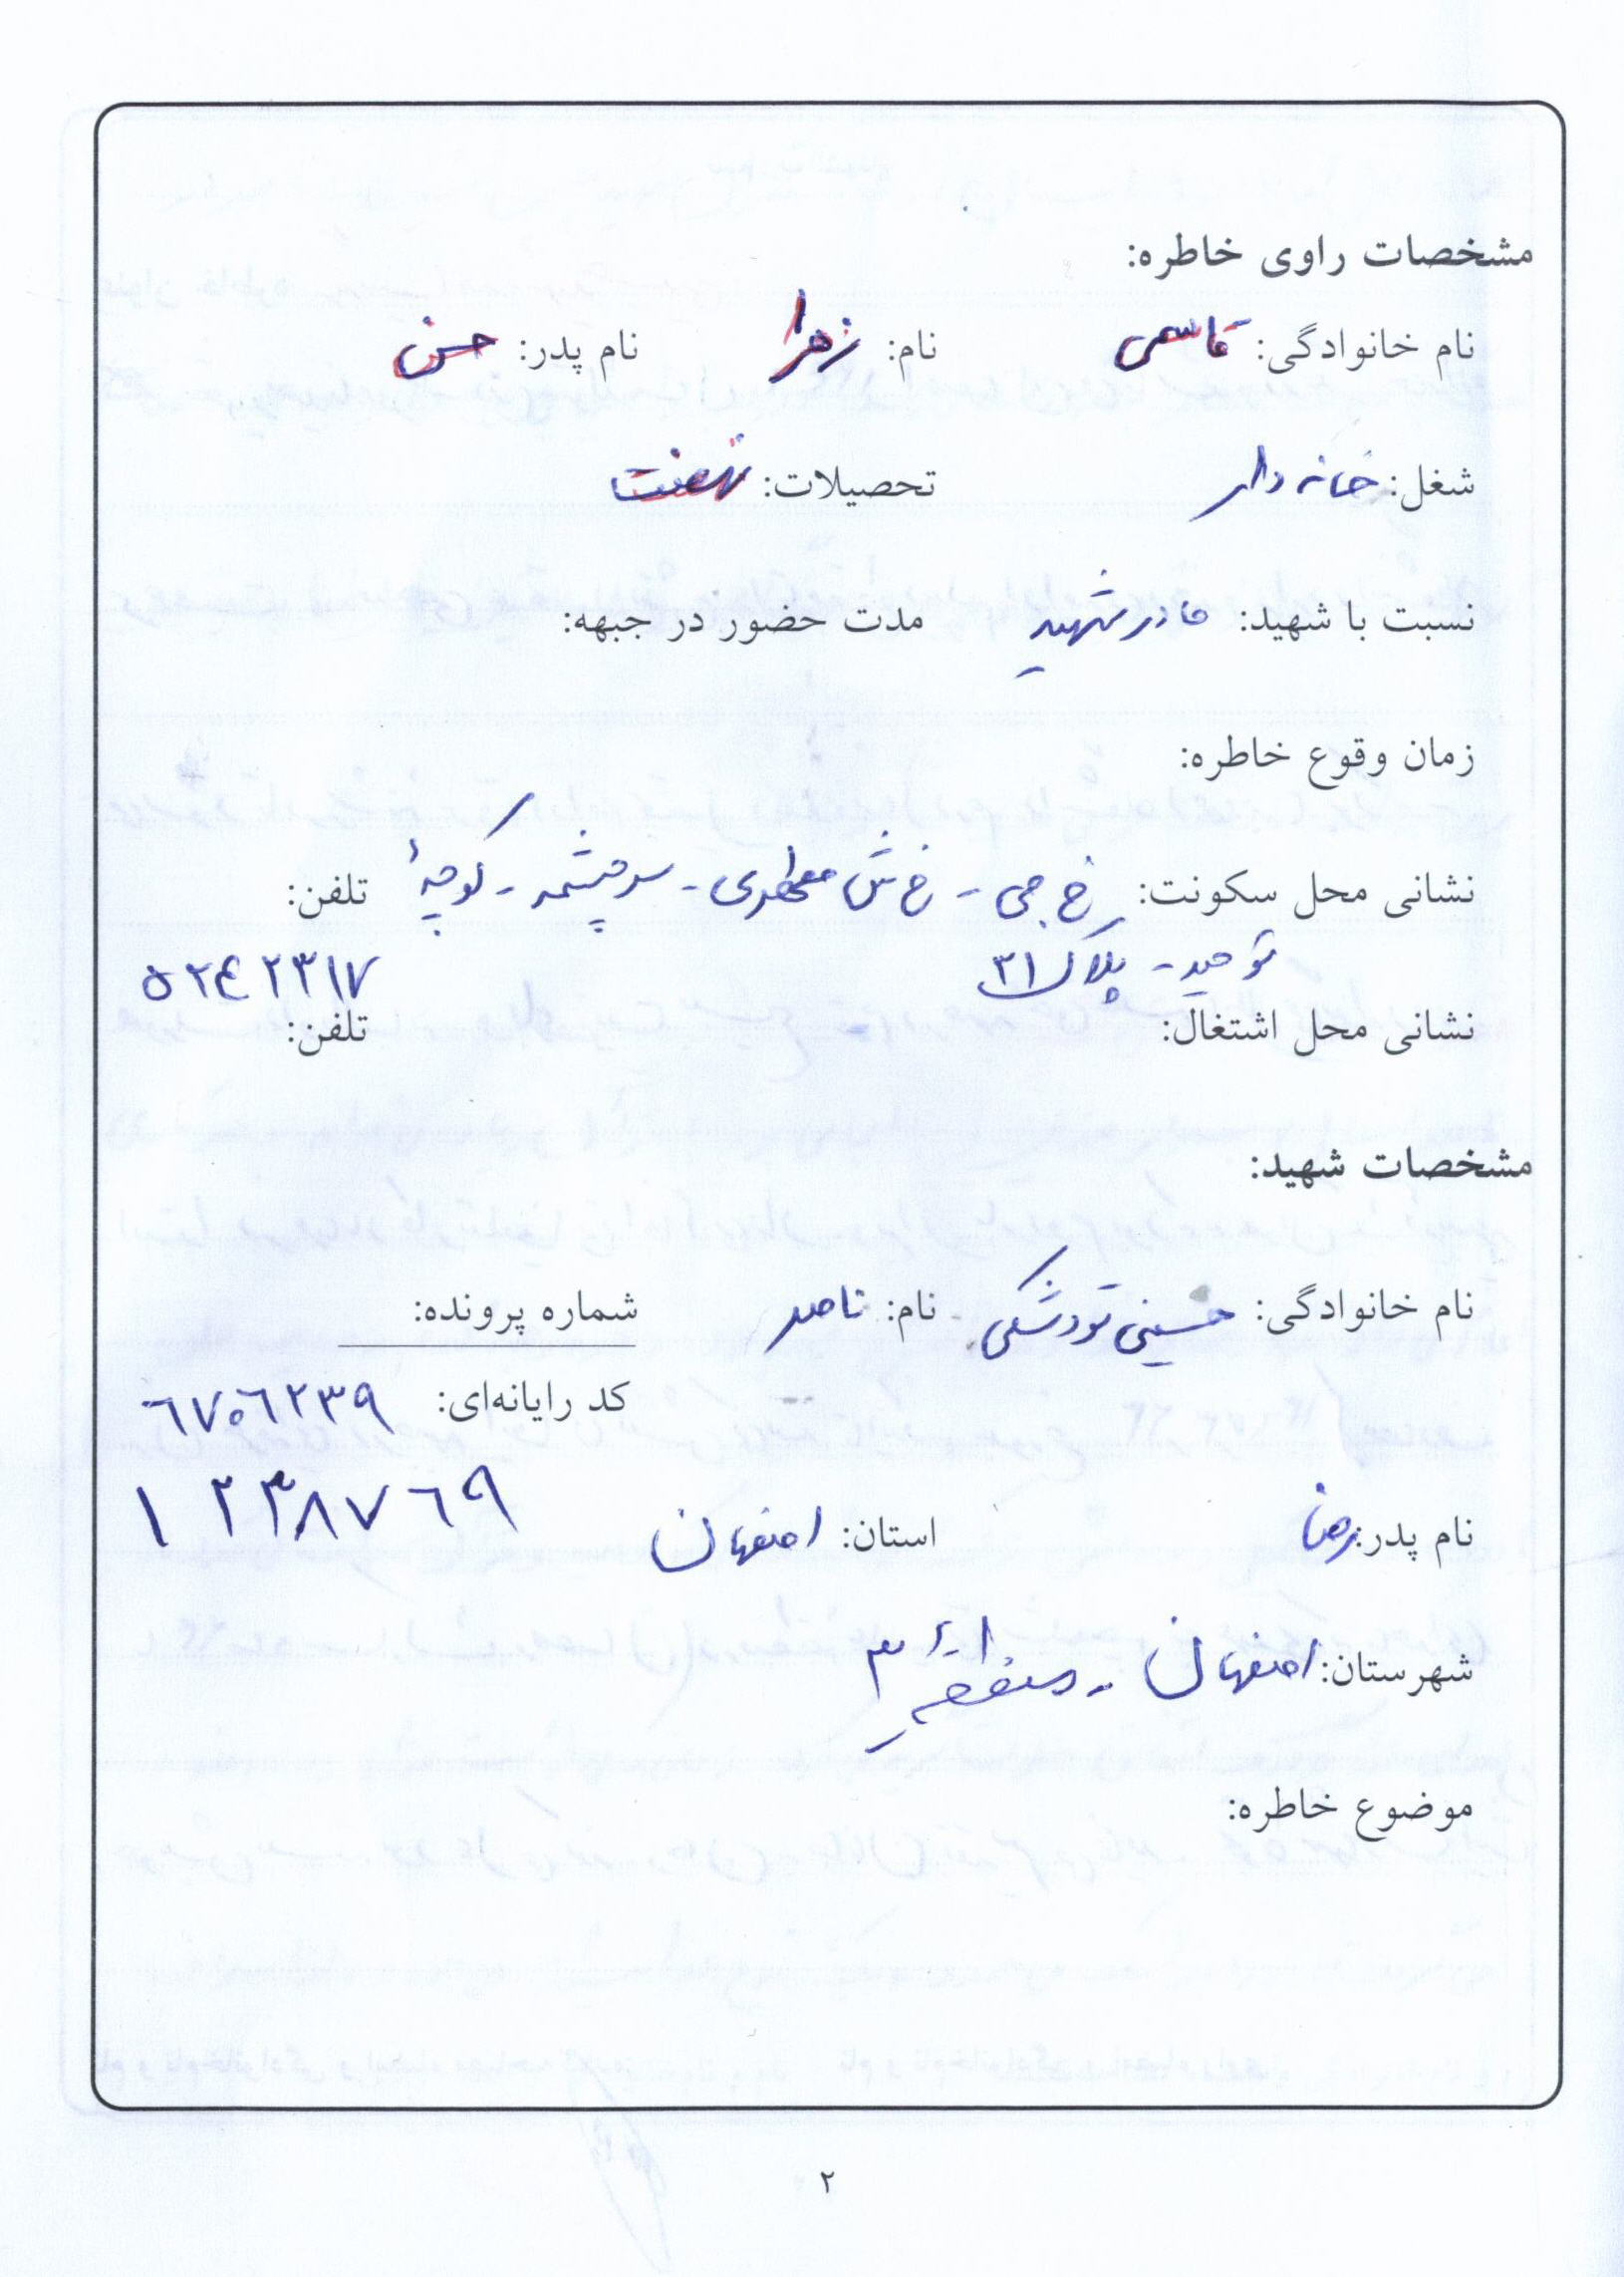 مشخصات راوی خاطره:
نام خانوادگی: قاسمی نام: زهرا نام پدر: حسن
شغل: خانه دار تحصیلات: نهضت
نسبت با شهید: مادر شهید مدت حضور در جبهه:
زمان وقوع خاطره:
نشانی محل سکونت: خ جی - خ ش مطهری - سرچشمه - کوچهٔ تلفن:
توحید - پلاک ۳۱ ۵۲۴۲۳۱۷
نشانی محل اشتغال: تلفن:
مشخصات شهید:
نام خانوادگی: حسینی تودشکی نام: ناصر شماره پرونده:
کد رایانه‌ای: ۶۷۰۶۲۳۹
نام پدر: رضا استان: اصفهان ۱۲۳۸۷۶۹
شهرستان: اصفهان - منطقهٔ ۳
موضوع خاطره:
۲